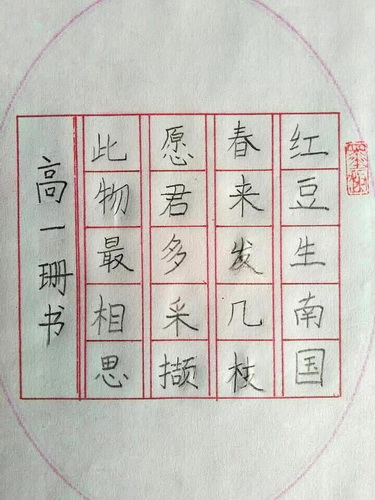 红豆生南国
春来发几枝
愿君多采撷
此物最相思
高一珊书